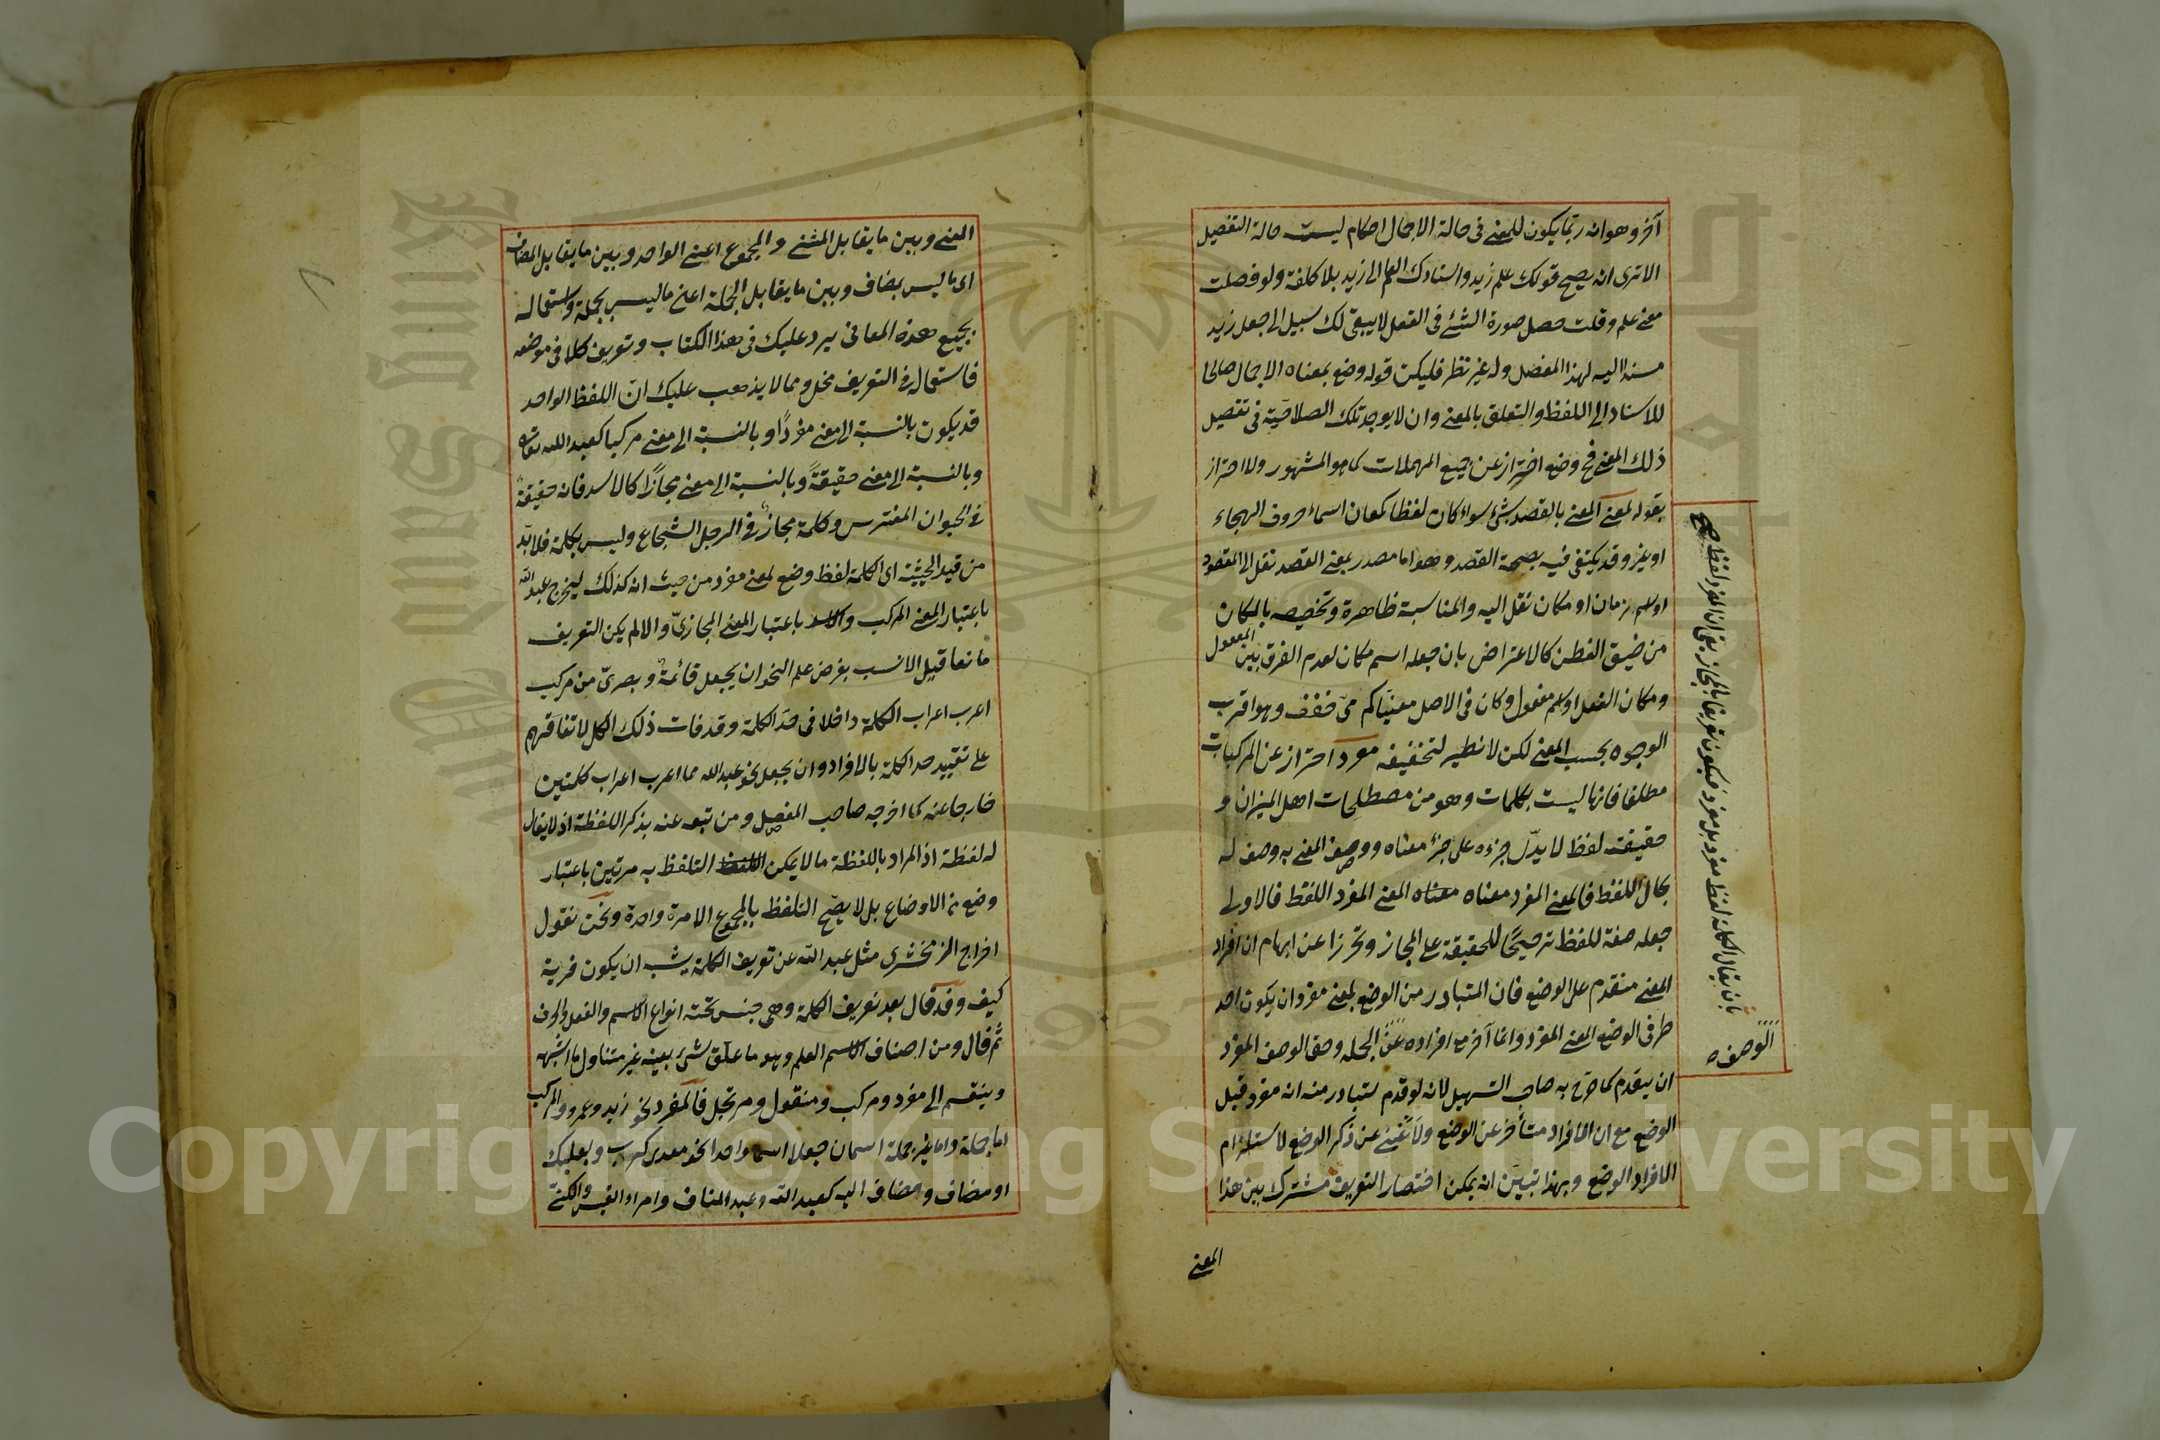 آخر وهو انه ربما يكون للمعنى فى حالة الاجمال احكام ليست حالة التفصيل
الا ترى انه يصح قولك علم زيد واسنادك العلم الى زيد بلا كلفة ولو فصلت
معنى علم وقلت حصل صورة الشئ فى العقل لا يبقى لك سبيل الى جعل زيد
مسندا اليه لهذا المفصل وله غير نظر فليكن قوله وضع بمعناه الاجمال صالحا
للاسناد الى اللفظ والتعلق بالمعنى وان لا يوجد تلك الصلاحية فى تفصيل
ذلك المعنى فح وضع احتراز عن جميع المهملات كما هو المشهور ولا احتراز
بقوله لمعنى المعنى بالقصد بشئ سواء كان لفظا كمعان اسماء حروف الهجاء
او غيره وقد يكتفى فيه بصحة القصد وهو اما مصدر بمعنى القصد نقل الى المقصود
او اسم زمان او مكان نقل اليه والمناسبة ظاهرة وتخصيصه بالمكان
من ضيق الفطن كالاعتراض بان جعله اسم مكان لعدم الفرق بين المفعول
ومكان الفعل او اسم مفعول وكان فى الاصل معنى كمرمى خفف وهو اقرب
الوجوه بحسب المعنى لكن لا نظير لتخفيفه مفرد احتراز عن المركبات
مطلقا فانها ليست بكلمات وهو من مصطلحات اهل الميزان و
حقيقته لفظ لا يدل جزءه على جزء معناه ووصف المعنى به وصف له
بحال اللفظ فالمعنى المفرد معناه معناه المعنى المفرد اللفظ فالاولى
جعله صفة للفظ ترجيحا للحقيقة على المجاز وتحرزا عن ابهام ان افراد
المعنى متقدم على الوضع فان المتبادر من الوضع لمعنى مفرد ان يكون احد
طرفى الوضع المعنى المفرد وانما آخر مع افراده عن الجمله وحق الوصف المفرد
ان يتقدم كما صرح به صاحب التسهيل لانه لو قدم لتبادر منه انه مفرد قبل
الوضع مع ان الافراد متأخر عن الوضع ولا تغنى عن ذكر الوضع لاستلزام
الافراد الوضع وبهذا تبين انه يمكن اختصار التعريف مشترك بين هذا
المعنى
بان يقال الكلمة لفظ مفرد بل مفرد فيكون تعريفا بالمجاز يعنى ان المفرد لفظ صح
الوصف ه
المعنى وبين ما يقابل المثنى والمجموع اعنى الواحد وبين ما يقابل المضاف
اى ما ليس بمضاف وبين ما يقابل الجملة اعنى ما ليس بجملة واستعماله
بجميع هذه المعانى يرد عليك فى هذا الكتاب وتعريف كلا فى موضعه
فاستعماله فى التعريف مخل ومما لا يذهب عليك ان اللفظ الواحد
قد يكون بالنسبة الى معنى مفردا وبالنسبة الى معنى مركبا كعبد الله
وبالنسبة الى معنى حقيقة وبالنسبة الى معنى مجازا كالاسد فانه حقيقة
فى الحيوان المفترس وكلمة مجاز فى الرجل الشجاع وليس بكلمة فلا بد
من قيد الحيثية اى الكلمة لفظ وضع لمعنى مفرد من حيث انه كذلك ليخرج عبد الله
باعتبار المعنى المركب والاسد باعتبار المعنى المجازى والا لم يكن التعريف
مانعا قيل الانسب بغرض علم النحو ان يجعل قائمة وبصرى من مركب
اعرب اعراب الكلمة داخلا فى حد الكلمة وقد فات ذلك الكل لاتفاقهم
على تقييد حد الكلمة بالافراد وان يجعل نحو عبد الله مما اعرب اعراب كلمتين
خارجا عنه كما اخرجه صاحب المفصل ومن تبعه عنه بذكر اللفظة اذ لا يقال
له لفظة اذ المراد باللفظة ما لا يمكن التلفظ به مرتين باعتبار
وضع من الاوضاع بل لا يصح التلفظ بالمجموع الا مرة واحدة ونحن نقول
اخراج الزمخشرى مثل عبد الله عن تعريف الكلمة يشبه ان يكون فرية
كيف وقد قال بعد تعريف الكلمة وهى جنس تحته انواع الاسم والفعل والحرف
ثم قال ومن اصناف الاسم العلم وهو ما علق بشئ بعينه غير متناول ما اشبهه
وينقسم الى مفرد ومركب ومنقول ومرتجل فالمفرد نحو زيد وعمرو والمركب
اما جملة واما غير جملة اسمان جعلا اسما واحدا نحو معديكرب وبعلبك
او مضاف ومضاف اليه كعبد الله وعبد المناف وامرا القيس والكنى
Copyright © King Saud University